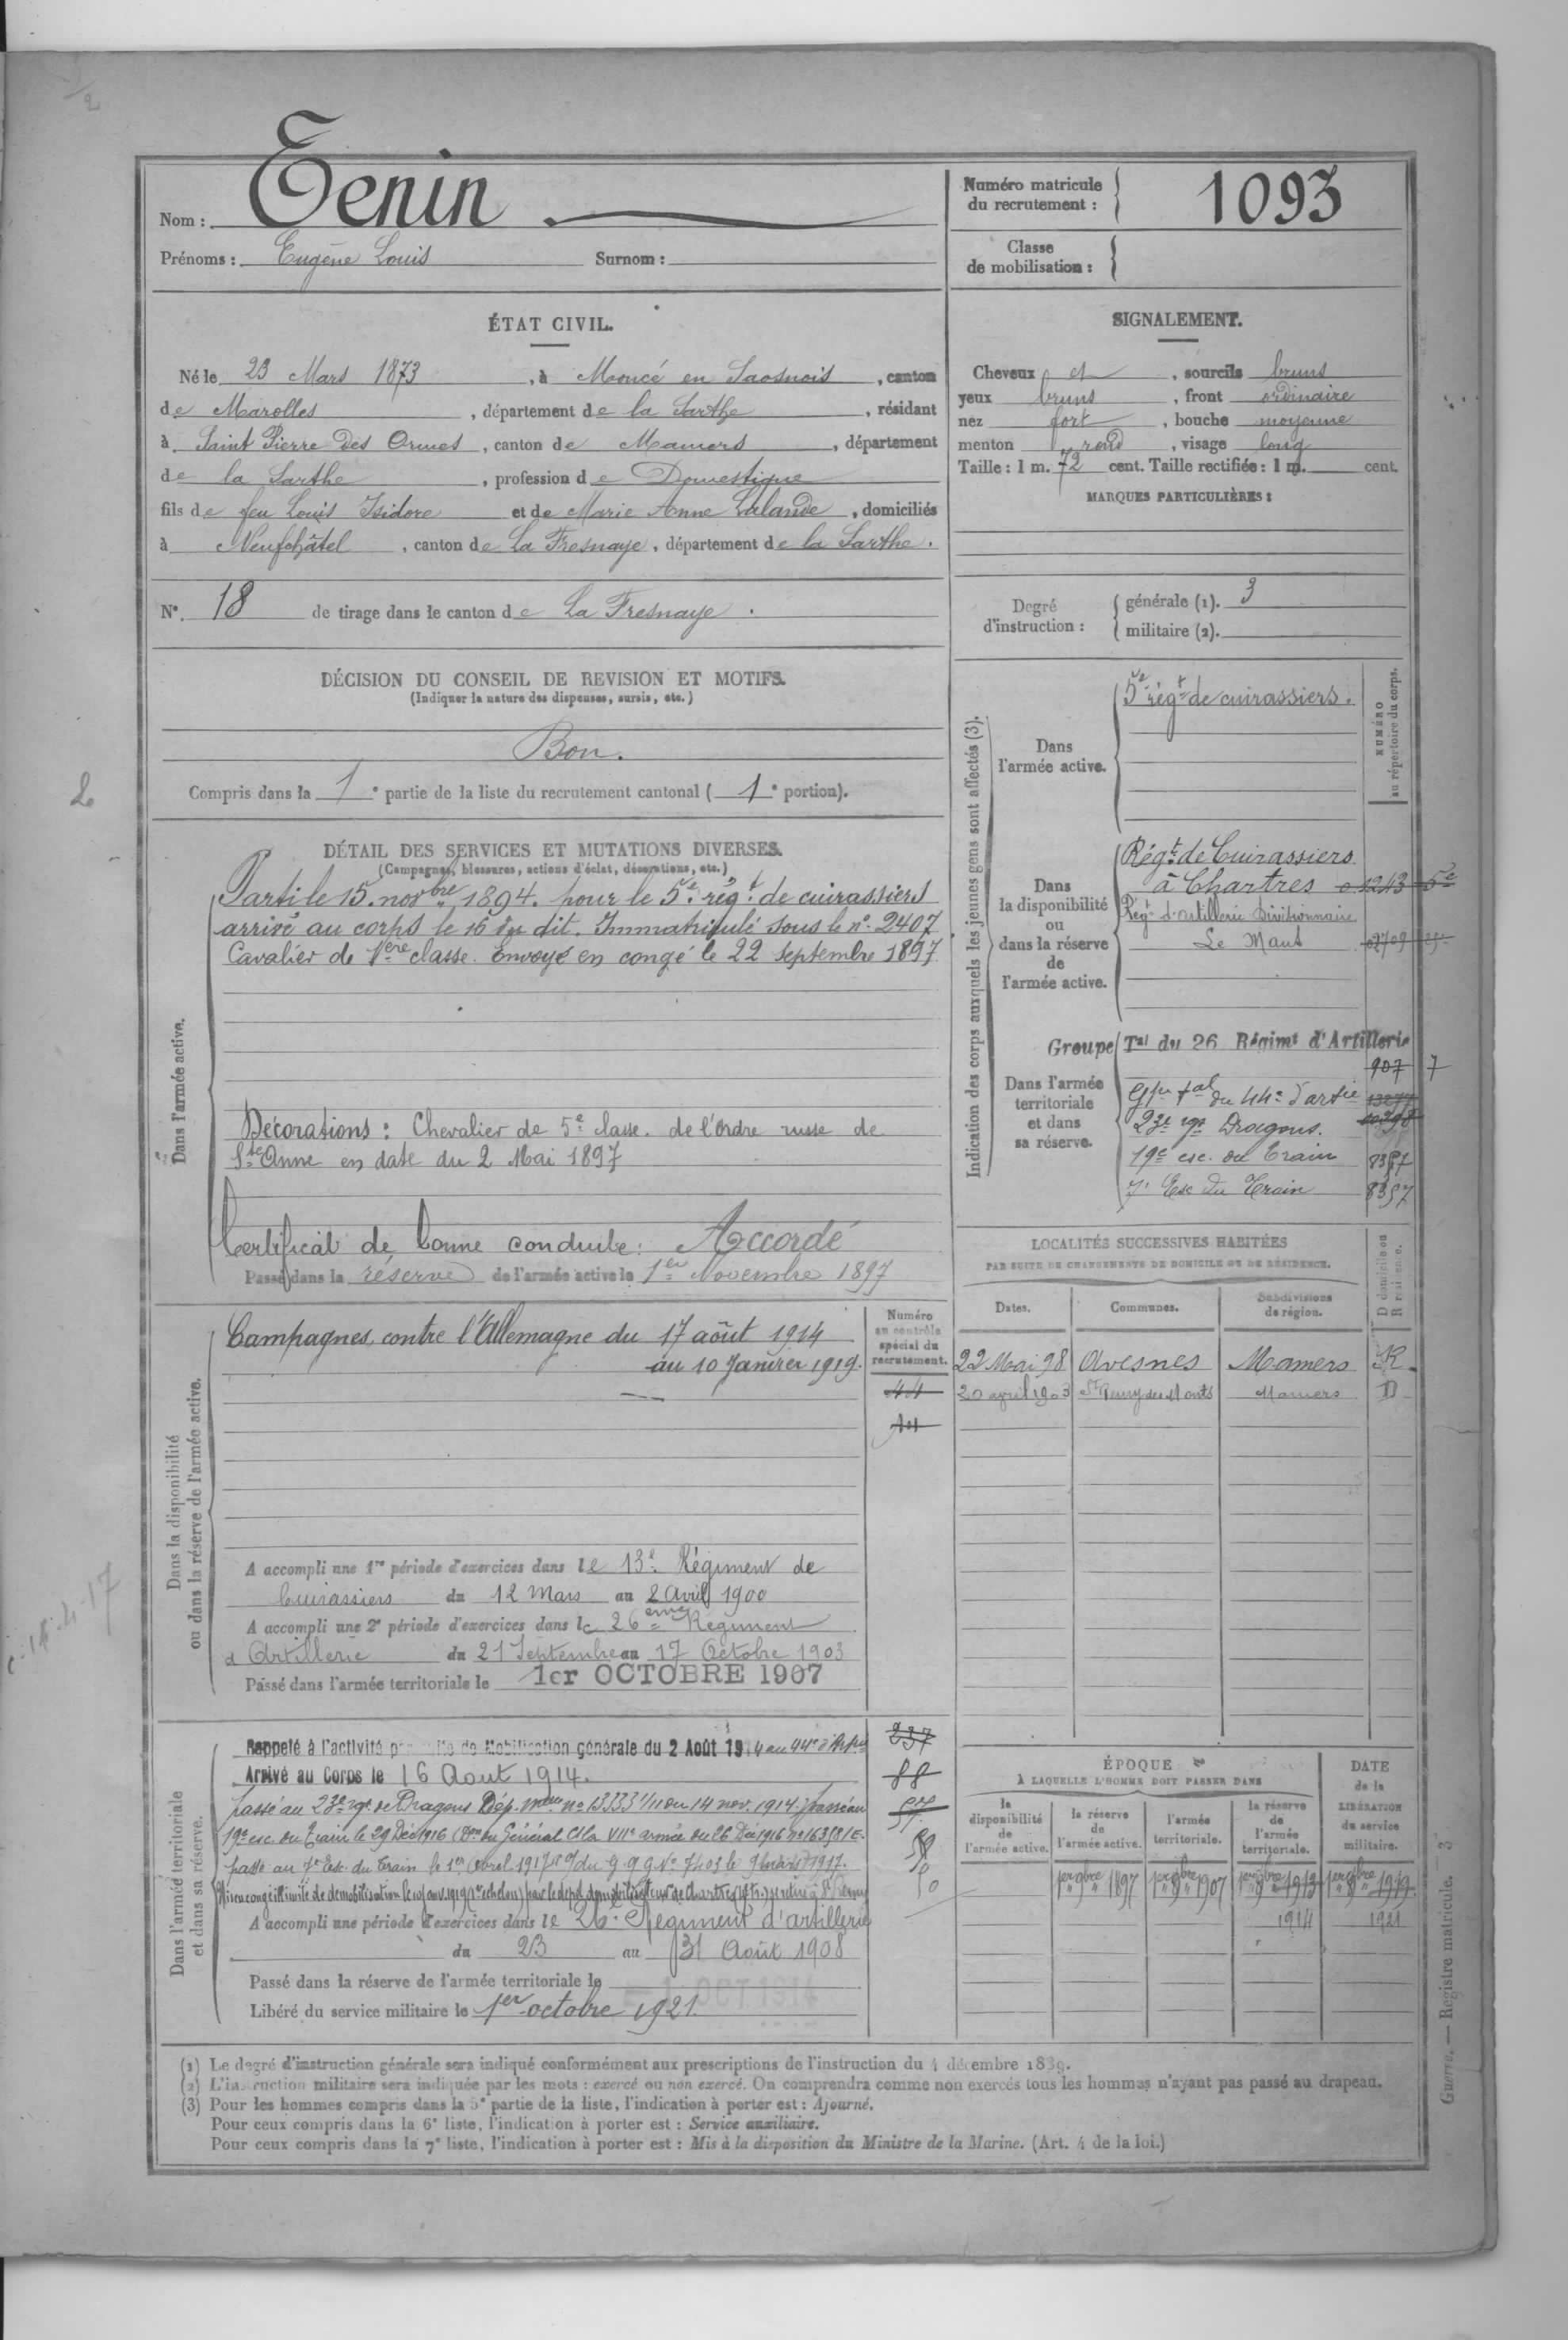 Nom : Tenin
Prénoms : Eugène Louis Surnom :
Numéro matricule du recrutement : 1093
Classe de mobilisation :
ÉTAT CIVIL.
Né le 23 Mars 1873, à Moncé en Saosnois, canton
de Marolles, département de la Sarthe, résidant
à Saint Pierre des Ormes, canton de Mamers, département
de la Sarthe, profession de Domestique
fils de feu Louis Isidore et de Marie Anne Lalande, domiciliés
à Neufchâtel, canton de La Fresnaye, département de la Sarthe.
N° 18 de tirage dans le canton de La Fresnaye.
SIGNALEMENT.
Cheveux et, sourcils bruns
yeux bruns, front ordinaire
nez fort, bouche moyenne
menton rond, visage long
Taille : 1 m. 72 cent. Taille rectifiée : 1 m. cent.
MARQUES PARTICULIÈRES :
Degré d'instruction :
générale (1). 3
militaire (2).
DÉCISION DU CONSEIL DE REVISION ET MOTIFS.
(Indiquer la nature des dispenses, sursis, etc.)
Bon.
Compris dans la 1e partie de la liste du recrutement cantonal ( 1e portion).
DÉTAIL DES SERVICES ET MUTATIONS DIVERSES.
(Campagnes, blessures, actions d'éclat, décorations, etc.)
Dans l'armée active.
Parti le 15 novbre 1894. pour le 5e régt de cuirassiers
arrivé au corps le 16 du dit. Immatriculé sous le n° 2407
Cavalier de 1ère classe. Envoyé en congé le 22 septembre 1897
Décorations : Chevalier de 5e classe de l'Ordre russe de
Ste Anne en date du 2 Mai 1897
Certificat de bonne conduite : Accordé
Passé dans la réserve de l'armée active le 1er Novembre 1897
Dans la disponibilité
ou dans la réserve de l'armée active.
Campagnes contre l'Allemagne du 17 août 1914
au 10 Janvier 1919.
Numéro au contrôle spécial du recrutement.
44
A accompli une 1re période d'exercices dans le 13e Régiment de
Cuirassiers du 12 Mars au 2 Avril 1900
A accompli une 2e période d'exercices dans le 26ème Régiment
d'Artillerie du 21 Septembre au 17 Octobre 1903
Passé dans l'armée territoriale le 1er OCTOBRE 1907
Dans l'armée territoriale
et dans sa réserve.
Rappelé à l'activité de Mobilisation générale du 2 Août 1914 au 44e d'Artie
Arrivé au Corps le 16 Aout 1914.
passé au 23e rgt de Dragons Dép. mlle n° 13333 1/11 du 14 nov. 1914. passé au
19e esc. du Train le 29 Déc 1916 (Don du Général Ct la VIIe armée du 26 Déc 1916 n° 16358/E.
passé au 7e Esc. du Train le 1er Avril 1917 du G.Q.G N° 7403 le 9 1917.
Mis en congé illimité de démobilisation le 10 janv. 1919 (1er échelon) par le dépôt démobilisateur de Chartres se retire à St Remy
A accompli une période d'exercices dans le 26e Régiment d'artillerie
du 23 au 31 Août 1908
Passé dans la réserve de l'armée territoriale le 1 OCT 1914
Libéré du service militaire le 1er octobre 1921.
237
88
Indication des corps auxquels les jeunes gens sont affectés (3).
Dans l'armée active.
5e régt de cuirassiers.
NUMÉRO au répertoire du corps.
Dans la disponibilité ou dans la réserve de l'armée active.
Régt de Cuirassiers
à Chartres 01243 5e
Régt d'artillerie Divisionnaire
Le Mans 02709
Dans l'armée territoriale et dans sa réserve.
Groupe Tal du 26 Régimt d'Artillerie
907 7
Gpe tal du 44e d'artie
23e rgt Dragons.
19e esc. du Train 8357
7e Esc du Train 8357
LOCALITÉS SUCCESSIVES HABITÉES
PAR SUITE DE CHANGEMENTS DE DOMICILE OU DE RÉSIDENCE.
Dates. Communes. Subdivisions de région. D domicile ou R résidence.
22 Mai 98 Avesnes Mamers R.
20 avril 1903 St Remy des Monts Mamers D
ÉPOQUE
À LAQUELLE L'HOMME DOIT PASSER DANS
la disponibilité de l'armée active.
la réserve de l'armée active.
l'armée territoriale.
la réserve de l'armée territoriale.
DATE de la LIBÉRATION du service militaire.
1er 9bre 1897 1er 8bre 1907 1er 8bre 1913 1er 8bre 1919
1914 1921
(1) Le degré d'instruction générale sera indiqué conformément aux prescriptions de l'instruction du 4 décembre 1889.
(2) L'instruction militaire sera indiquée par les mots : exercé ou non exercé. On comprendra comme non exercés tous les hommes n'ayant pas passé au drapeau.
(3) Pour les hommes compris dans la 5e partie de la liste, l'indication à porter est : Ajourné.
Pour ceux compris dans la 6e liste, l'indication à porter est : Service auxiliaire.
Pour ceux compris dans la 7e liste, l'indication à porter est : Mis à la disposition du Ministre de la Marine. (Art. 4 de la loi.)
Guerre. — Registre matricule.